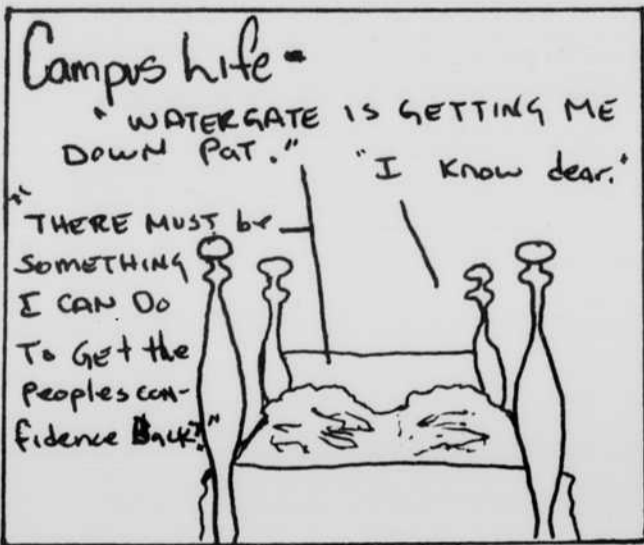 Campus Life -
"WATERGATE IS GETTING ME
DOWN PAT."
"I know dear."
"THERE MUST be
SOMETHING
I CAN DO
TO GEt the
Peoples con-
fidence Back?"